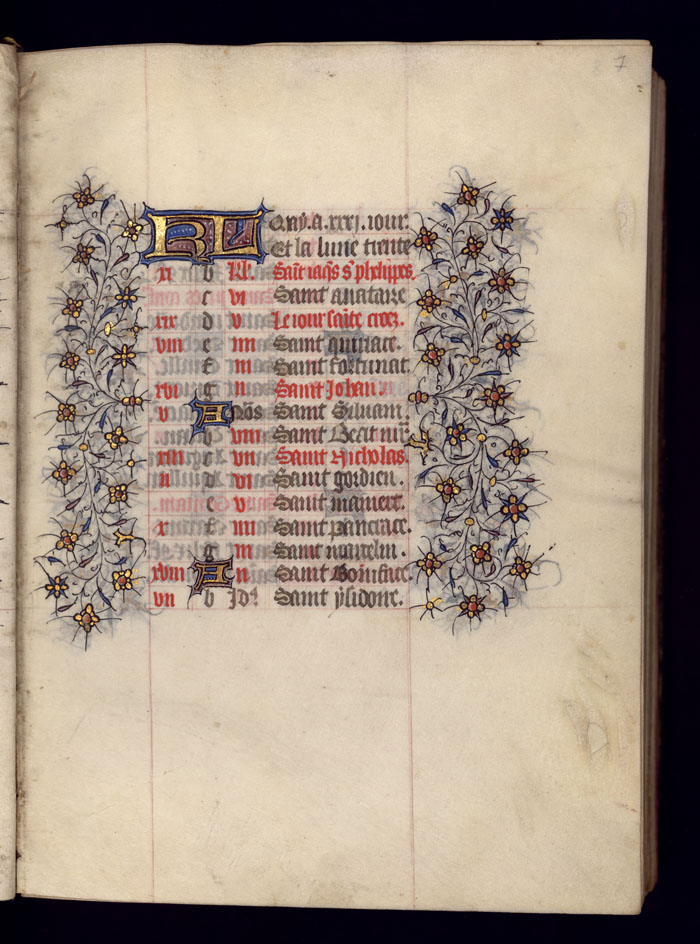 7
KL Qay. a. xxxj. iour.
Et la lune trente
xi b KL. Saīt iaq̄s st phelippes.
c vi Saint anataire
xix d v Le iour saīte croez.
viii e iiii Saint quiriace.
f iii Saint fortunat.
xvi g ii Saint Johan
v A nōs Saint Siluain
b viii Saint
xiii c vii Saint Nicholas.
ii d vii Saint gordien.
e v Saint mamert.
x f iiii Saint pancrace.
g iii Saint marcelin.
xviii A ii Saint Boniface.
vii b Jd9 Saint ysidore.